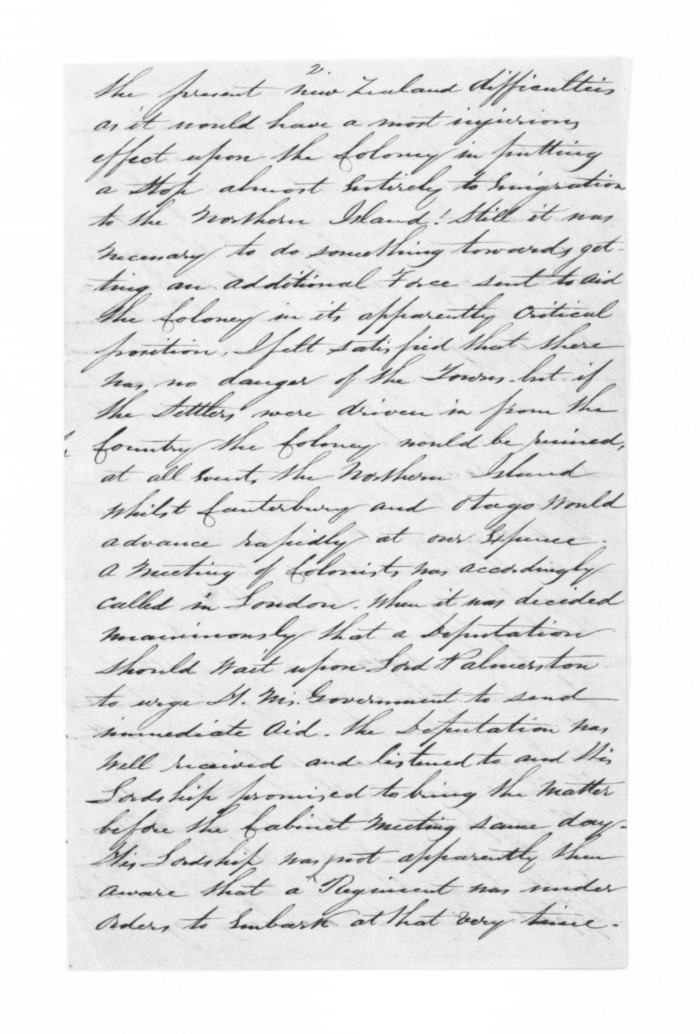 2
the present New Zealand difficulties
as it would have a most injurious
effect upon the Coloney in putting
a Stop almost Entirely to Emigration
to the Northern Island! Still it was
Necessary to do something towards get-
ting an additional Force sent to aid
the Coloney in its apparently Critical
position, I felt satisfied that there
was no danger of the Towns but if
the Settlers were driven in from the
Country the Coloney would be ruined,
at all Events the Northern Island
whilst Canterbury and Otago Would
advance rapidly at our Expence.
A Meeting of Colonists was accordingly
called in London. When it was decided
unanimously that a Deputation
should Wait upon Lord Palmerston
to urge H. Ms. Government to send
immediate Aid. The Deputation was
Well received and listened to and His
Lordship promised to bring the Matter
before the Cabinet Meeting same day-
His Lordship was not apparently then
aware that a Regiment was under
Orders to Embark at that very time.